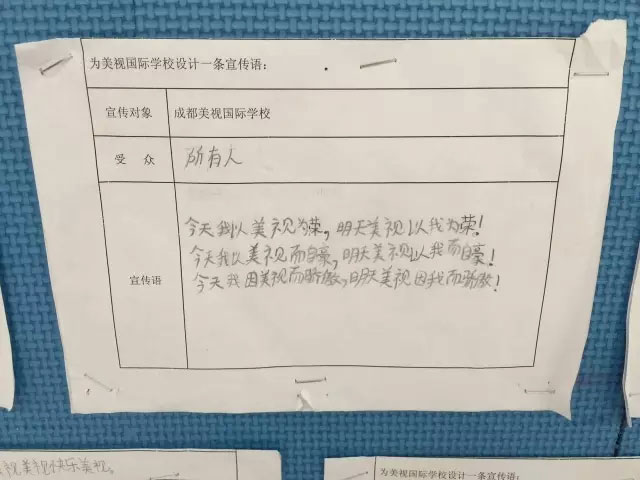 为美视国际学校设计一条宣传语：
宣传对象 成都美视国际学校
受 众 所有人
宣传语
今天我以美视为荣，明天美视以我为荣！
今天我以美视而自豪，明天美视以我而自豪！
今天我因美视而骄傲，明天美视因我而骄傲！
视美视快乐美视。
为美视国际学校设计一条宣传语：